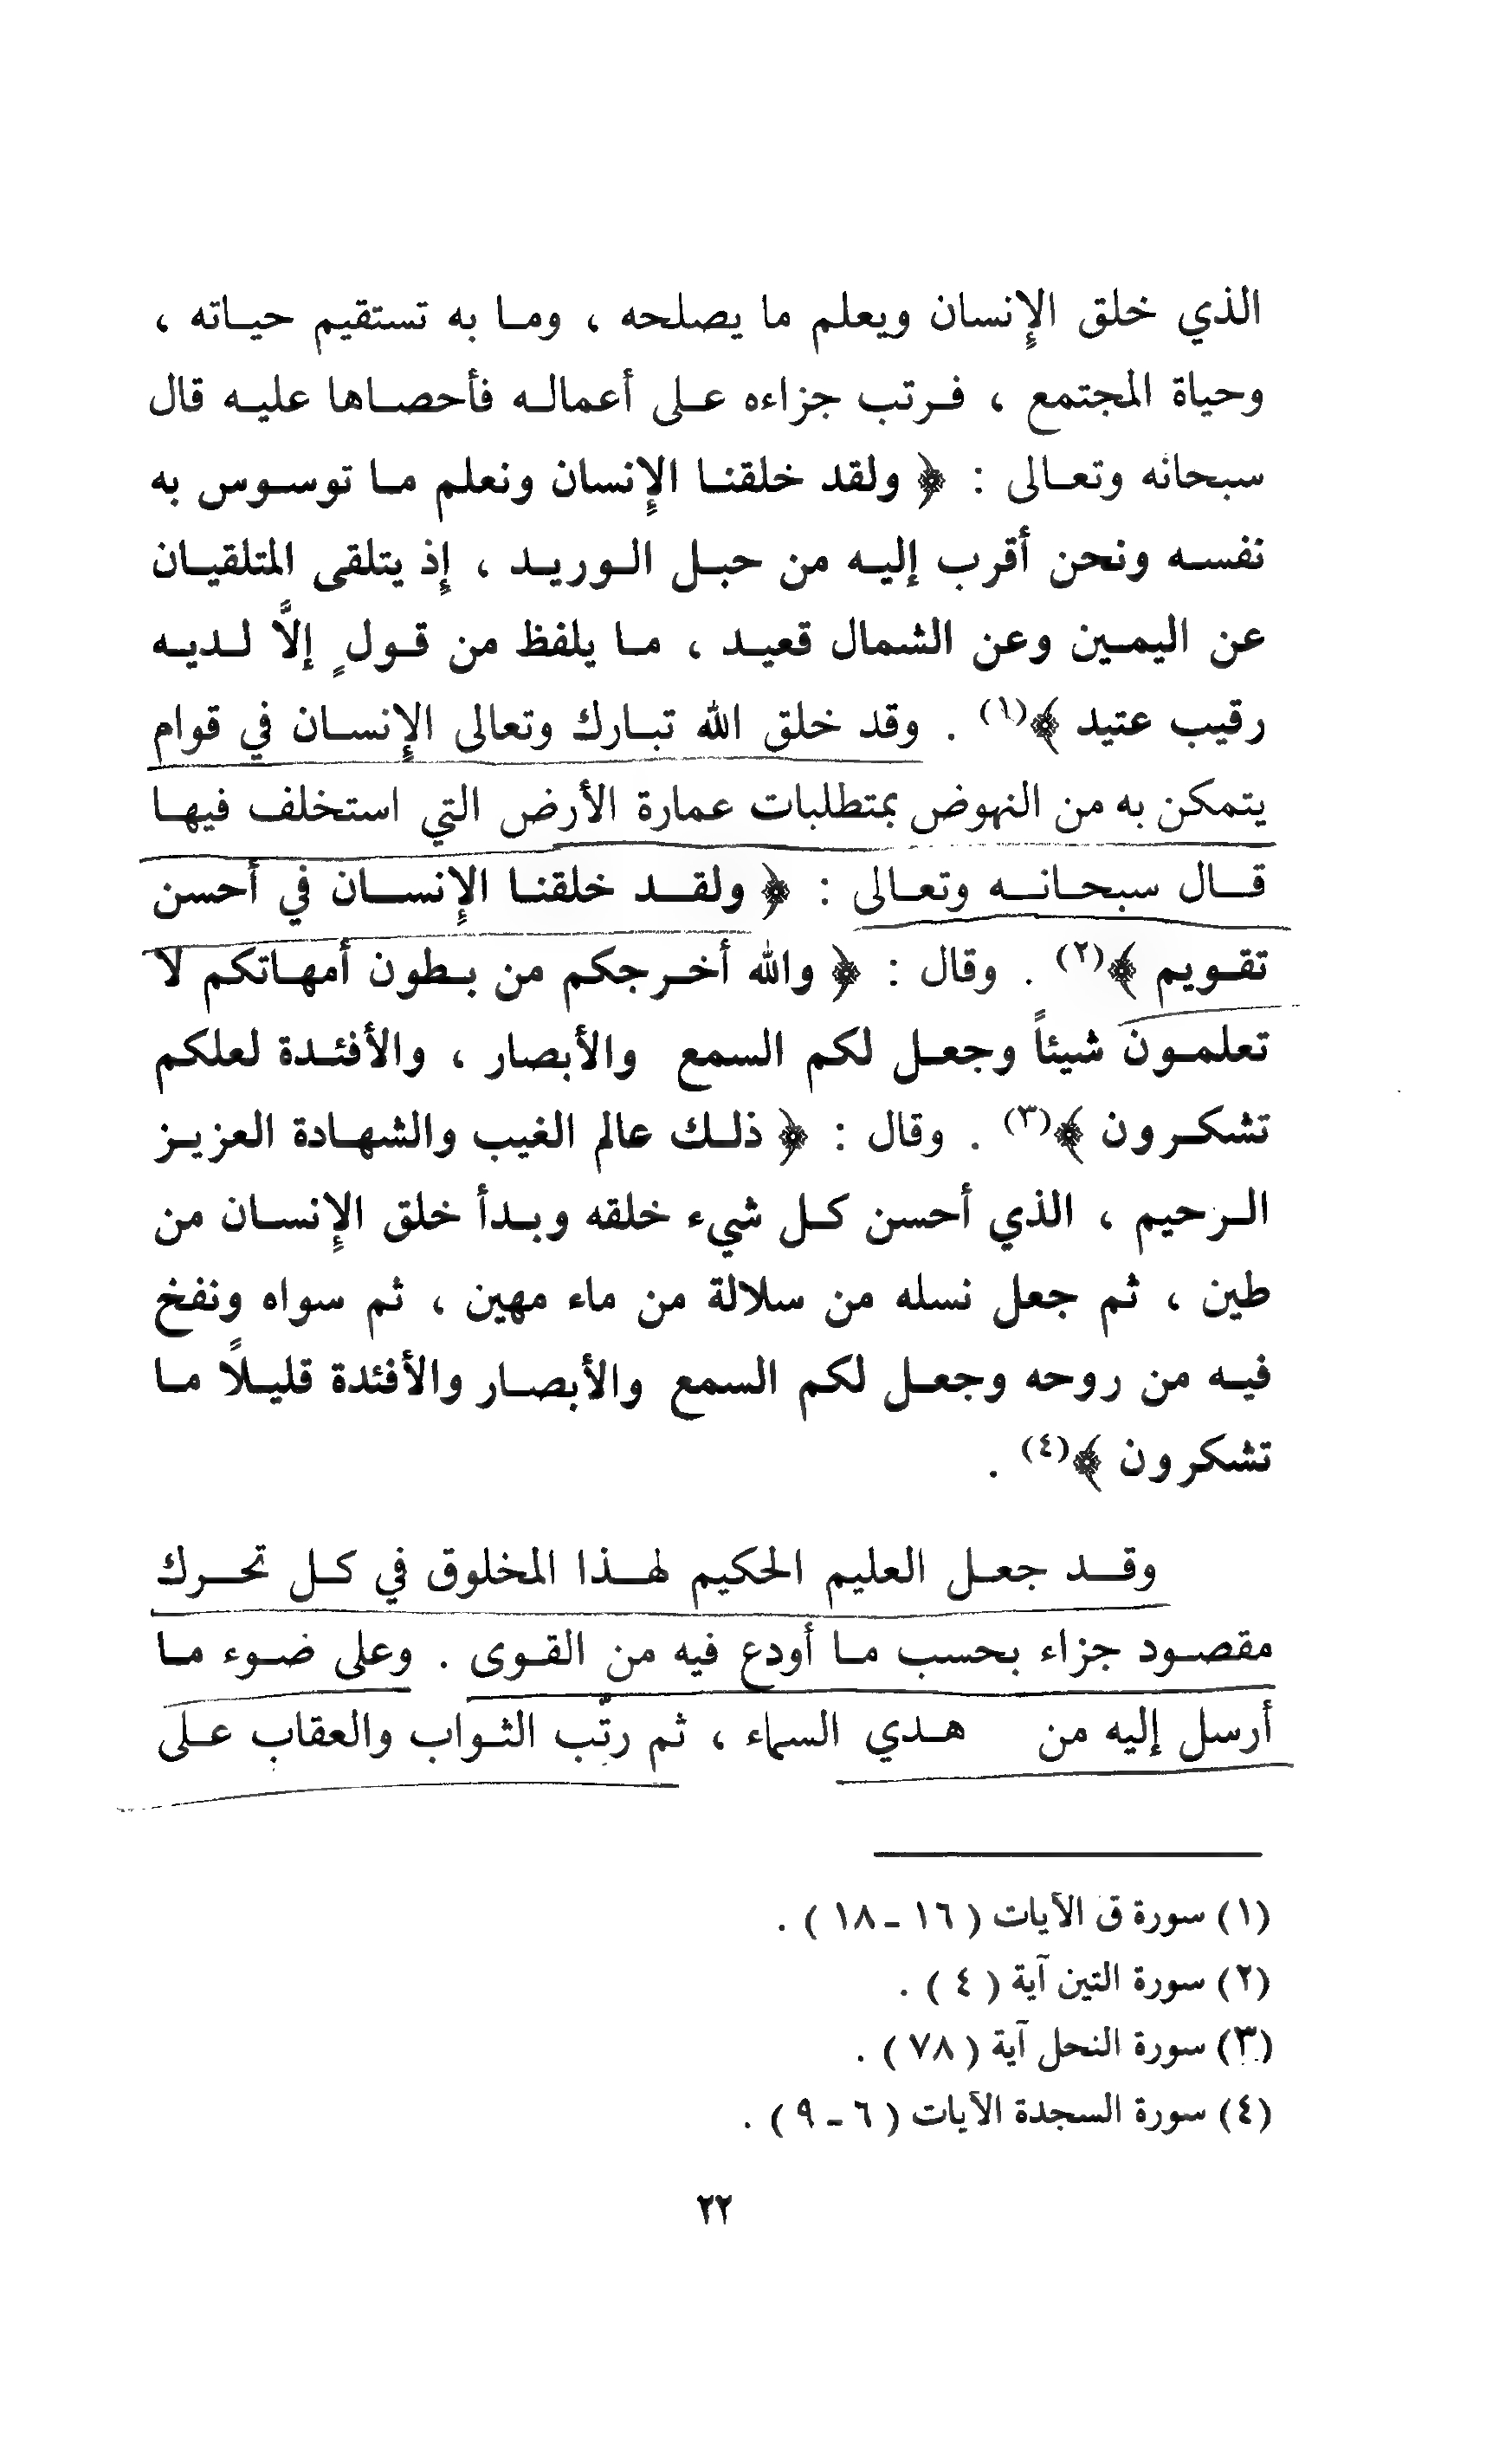 الذي خلق الإنسان ويعلم ما يصلحه ، وما به تستقيم حياته ،
وحياة المجتمع ، فرتب جزاءه على أعماله فأحصاها عليه قال
سبحانه وتعالى : ﴿ ولقد خلقنا الإنسان ونعلم ما توسوس به
نفسه ونحن أقرب إليه من حبل الوريد ، إذ يتلقى المتلقيان
عن اليمين وعن الشمال قعيد ، ما يلفظ من قولٍ إلاَّ لديه
رقيب عتيد ﴾(١) . وقد خلق الله تبارك وتعالى الإنسان في قوام
يتمكن به من النهوض بمتطلبات عمارة الأرض التي استخلف فيها
قال سبحانه وتعالى : ﴿ ولقد خلقنا الإنسان في أحسن
تقويم ﴾(٢) . وقال : ﴿ والله أخرجكم من بطون أمهاتكم لا
تعلمون شيئاً وجعل لكم السمع والأبصار ، والأفئدة لعلكم
تشكرون ﴾(٣) . وقال : ﴿ ذلك عالم الغيب والشهادة العزيز
الرحيم ، الذي أحسن كل شيء خلقه وبدأ خلق الإنسان من
طين ، ثم جعل نسله من سلالة من ماء مهين ، ثم سواه ونفخ
فيه من روحه وجعل لكم السمع والأبصار والأفئدة قليلاً ما
تشكرون ﴾(٤) .
وقد جعل العليم الحكيم لهذا المخلوق في كل تحرك
مقصود جزاء بحسب ما أودع فيه من القوى . وعلى ضوء ما
أرسل إليه من هدي السماء ، ثم رتَّب الثواب والعقاب على
(١) سورة ق الآيات ( ١٦ - ١٨ ) .
(٢) سورة التين آية ( ٤ ) .
(٣) سورة النحل آية ( ٧٨ ) .
(٤) سورة السجدة الآيات ( ٦ - ٩ ) .
٢٢